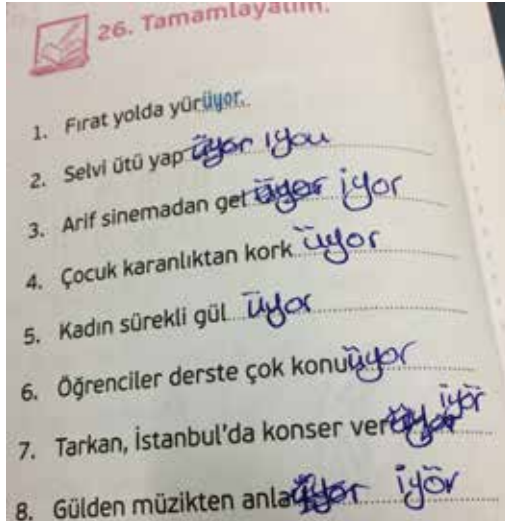 26. Tamamlayalım.
1. Fırat yolda yürüyor.
2. Selvi ütü yap üyor ıyou
3. Arif sinemadan gel üyor iyor
4. Çocuk karanlıktan kork üyor
5. Kadın sürekli gül üyor
6. Öğrenciler derste çok konuüyor
7. Tarkan, İstanbul'da konser ver iyör
8. Gülden müzikten anla iyör